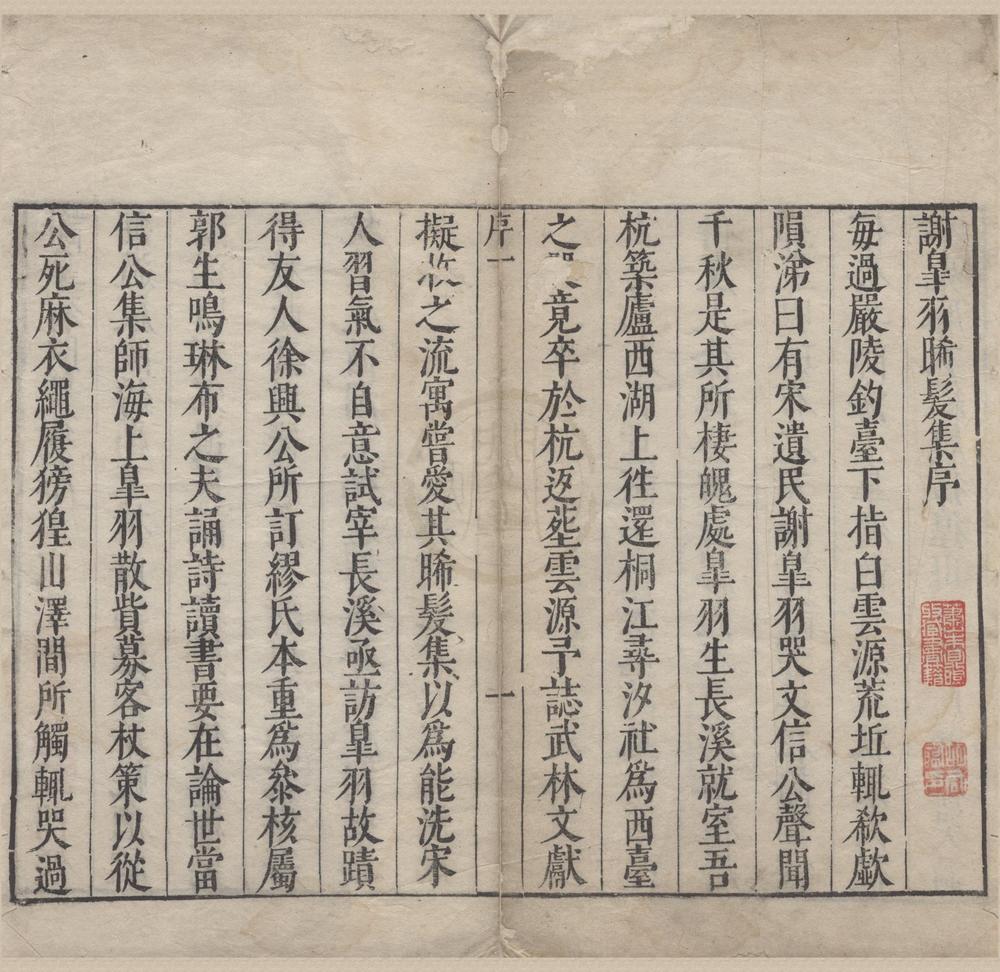 謝臯羽晞髮集序
每過嚴陵釣臺下指白雲源荒坵輒欷歔
隕涕曰有宋遺民謝臯羽哭文信公聲聞
千秋是其所棲魄處臯羽生長溪就室吾
杭築廬西湖上徃還桐江尋汐社爲西臺
之竟卒於杭返塟雲源予誌武林文獻
序一
一
擬收之流寓嘗愛其晞髮集以爲能洗宋
人習氣不自意試宰長溪亟訪臯羽故蹟
得友人徐興公所訂繆氏本重爲叅核屬
郭生鳴琳布之夫誦詩讀書要在論世當
信公集師海上臯羽散貲募客杖策以從
公死麻衣繩履徬徨山澤間所觸輒哭過